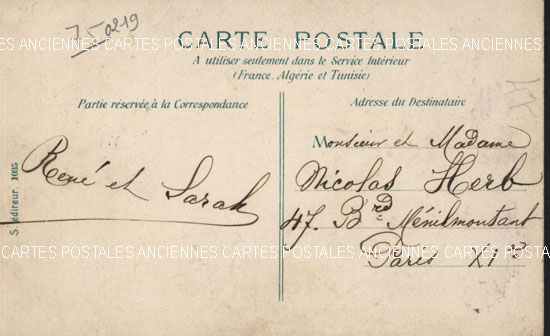 75 0219
CARTE POSTALE
A utiliser seulement dans le Service Intérieur
(France, Algérie et Tunisie)
Partie réservée à la Correspondance
Adresse du Destinataire
CARTES POSTALES ANCIENNES CARTES POSTALES ANCIENNES CARTES POSTALES ANCIENNES
René et Sarah
Monsieur et Madame
Nicolas Herb
47. Brd Ménilmontant
Paris XIe
S. éditeur 1035
CARTES POSTALES ANCIENNES CARTES POSTALES ANCIENNES CARTES POSTALES ANCIENNES